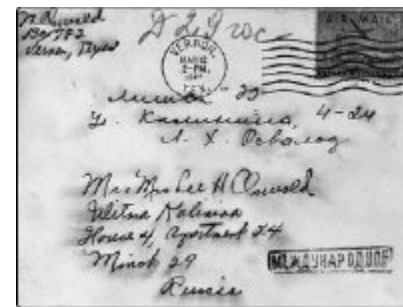 M. Oswald
Box 782
Vernon, Texas
VERNON,
MAR 12
2-PM
TEX.
AIR MAIL
4-24
Л. Х. Освальд
Mr + Mrs Lee H Oswald
Ulitsa Kalinina
House 4, Apartment 24
Minsk 29
Russia
МЕЖДУНАРОДНОЕ